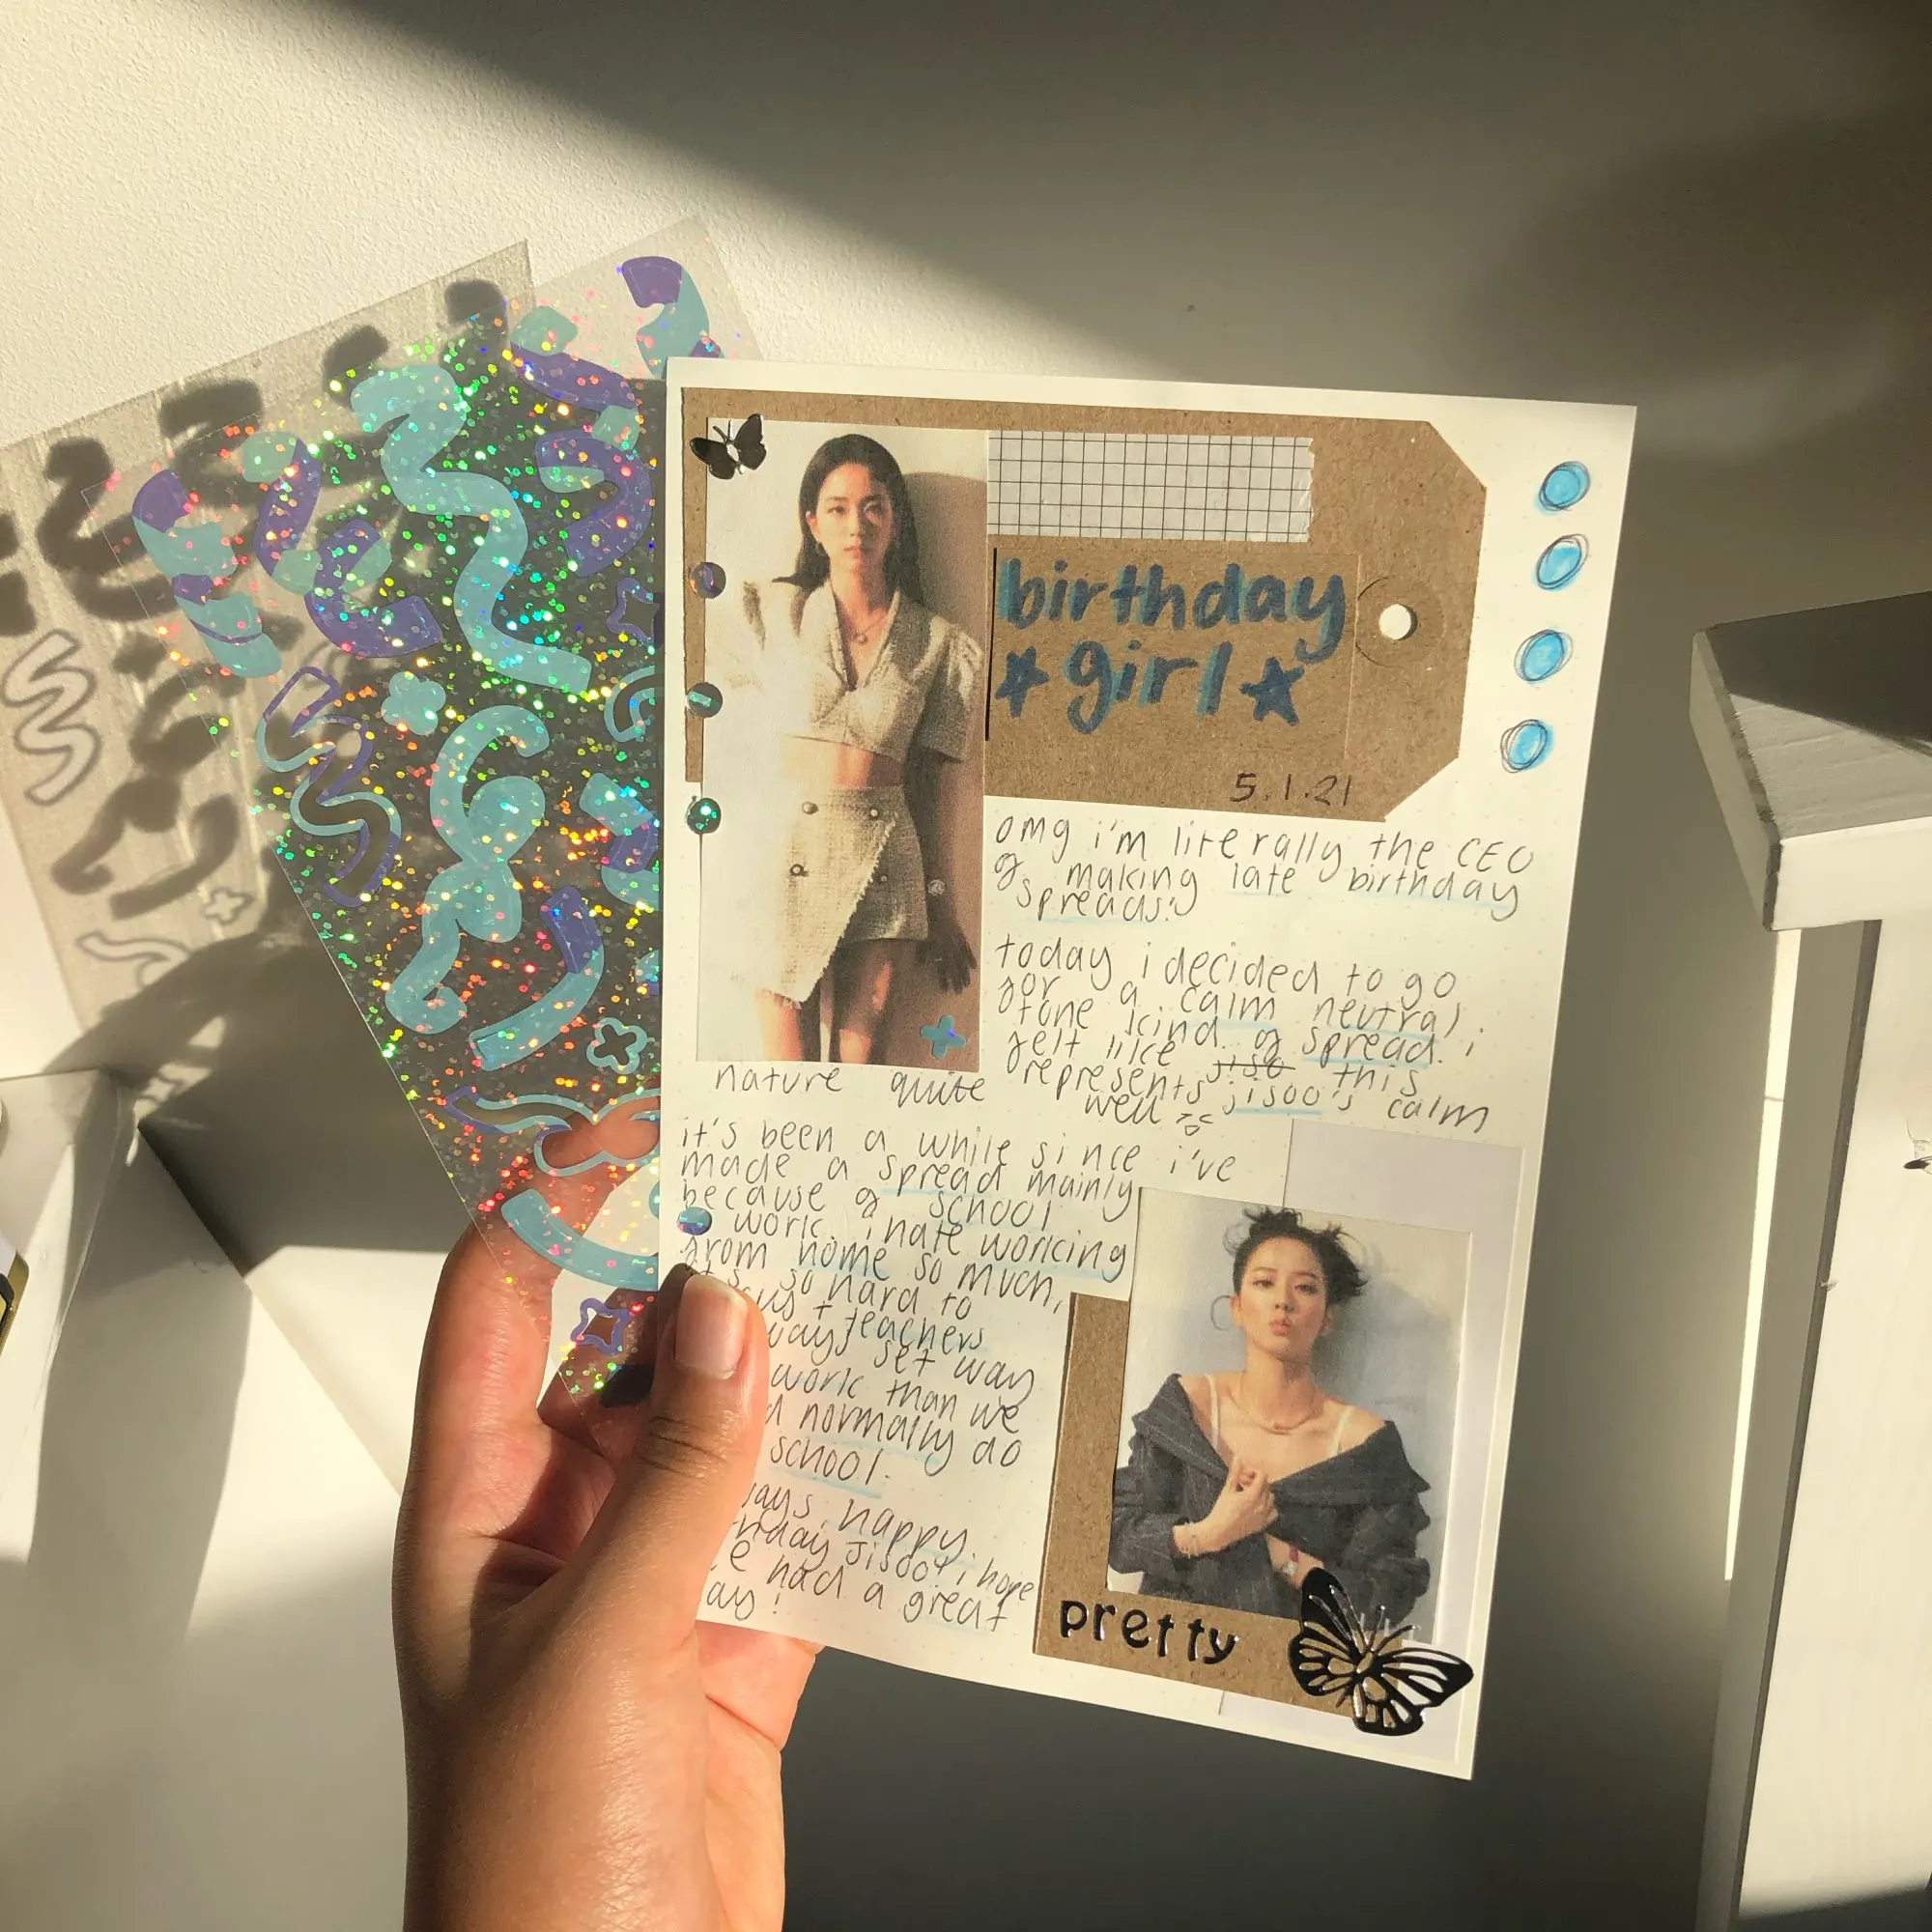 birthday
★ girl ★
5.1.21
omg i'm literally the CEO
of making late birthday
spreads!
today i decided to go
for a calm neutral
tone kind of spread. i
felt like this
represents jisoo's calm
nature quite well
it's been a while since i've
made a spread mainly
because of school
work. i hate working
from home so much,
it's so hard to
teachers
set way
work than we
normally do
school.
happy
jisoo! i hope
had a great
pretty